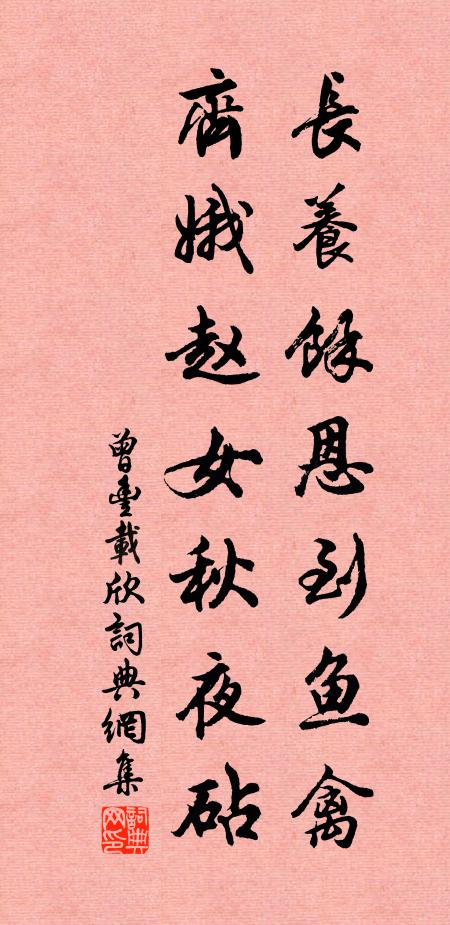 長養餘恩到鱼禽
齊娥赵女秋夜砧
曾豊載欣詞典網集
詞典网印